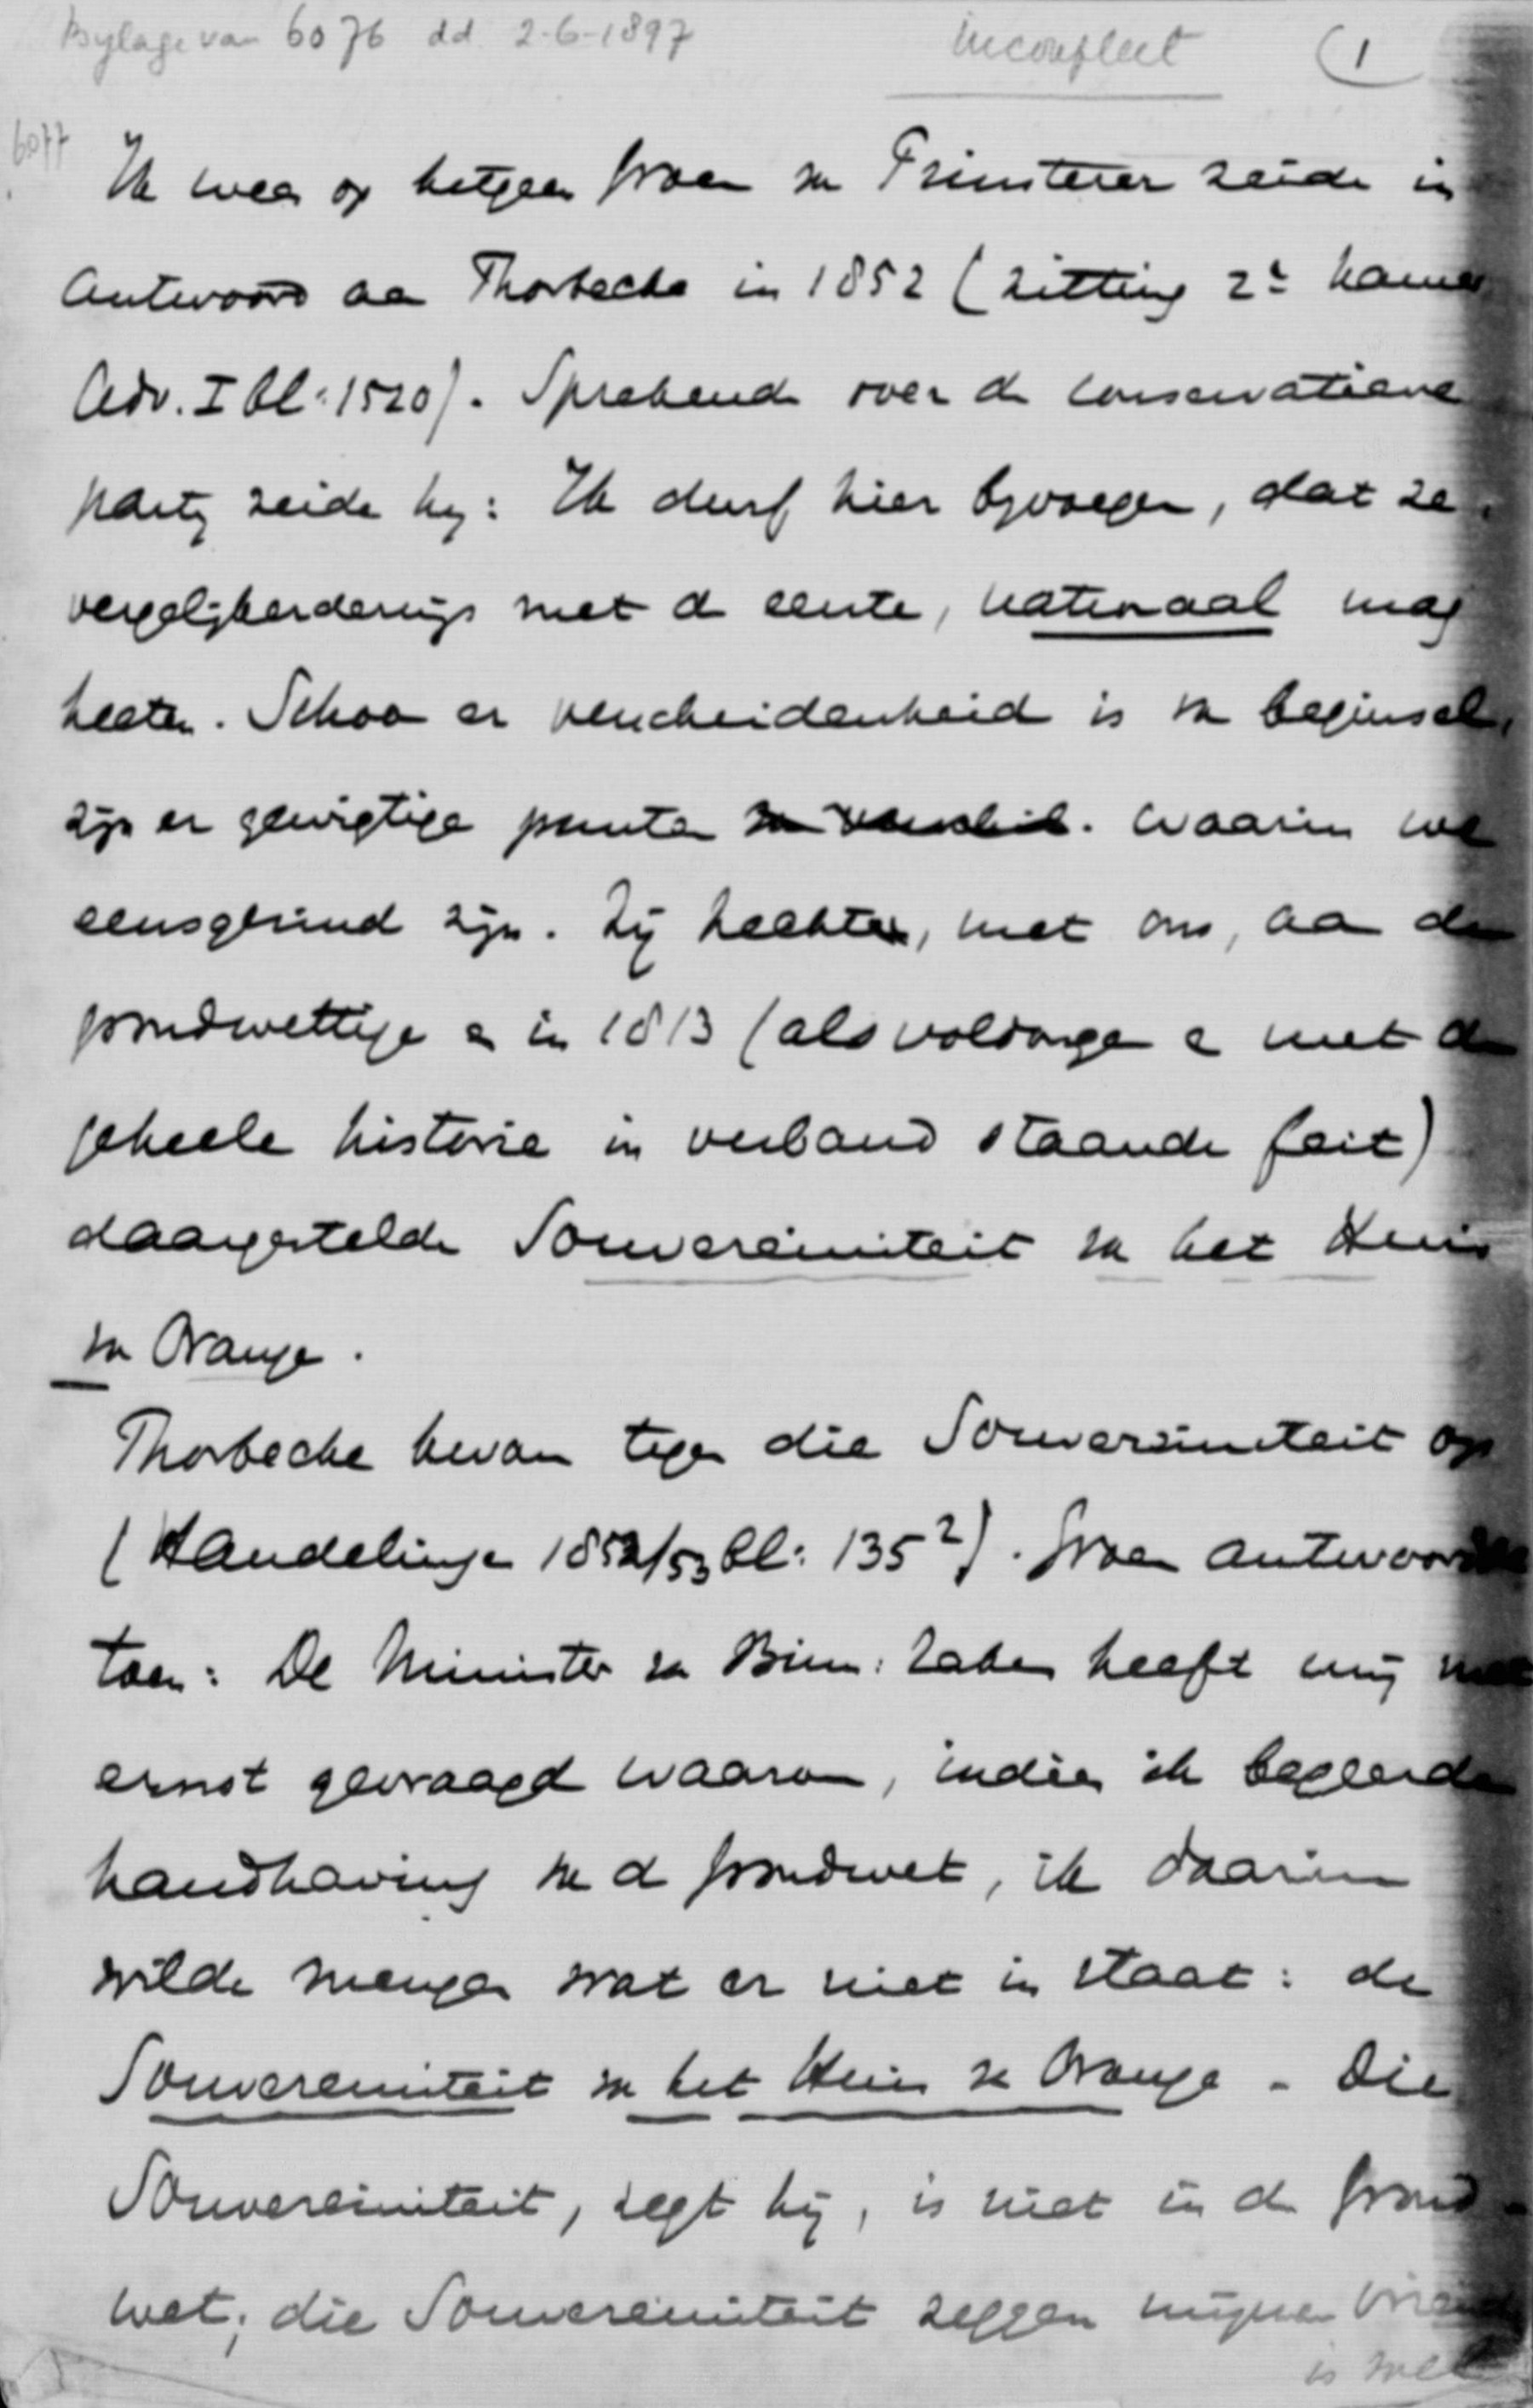 Bylage van 6076 dd. 2-6-1897 incompleet (1
6077
Ik wees op hetgeen Groen van Prinsterer zeide in
antwoord aan Thorbecke in 1852 (zitting 2e Kamer
Adv. I bl: 1520). Sprekende over de conservatieve
party zeide hy: Ik durf hier byvoegen, dat ze,
vergelijkenderwijs met de eerste, nationaal mag
heeten. Schoon er verscheidenheid is van beginsel,
zijn er gewigtige punten van verschil. waarin we
eensgezind zijn. Zij hechten, met ons, aan de
grondwettige en in 1813 (als voldongen en met de
geheele historie in verband staande feit)
daargestelde Souvereiniteit van het Huis
van Oranje.
Thorbecke kwam tegen die Souvereiniteit op
(Handelingen 1852/53 bl: 135²). Groen antwoordde
toen: De Minister van Binn: Zaken heeft mij met
ernst gevraagd waarom, indien ik begeerde
handhaving van de grondwet, ik daarin
wilde mengen wat er niet in staat: de
Souvereiniteit van het Huis van Oranje - Die
Souvereiniteit, zegt hij, is niet in de Grond-
wet; die Souvereiniteit zeggen mijne vrienden
is niet